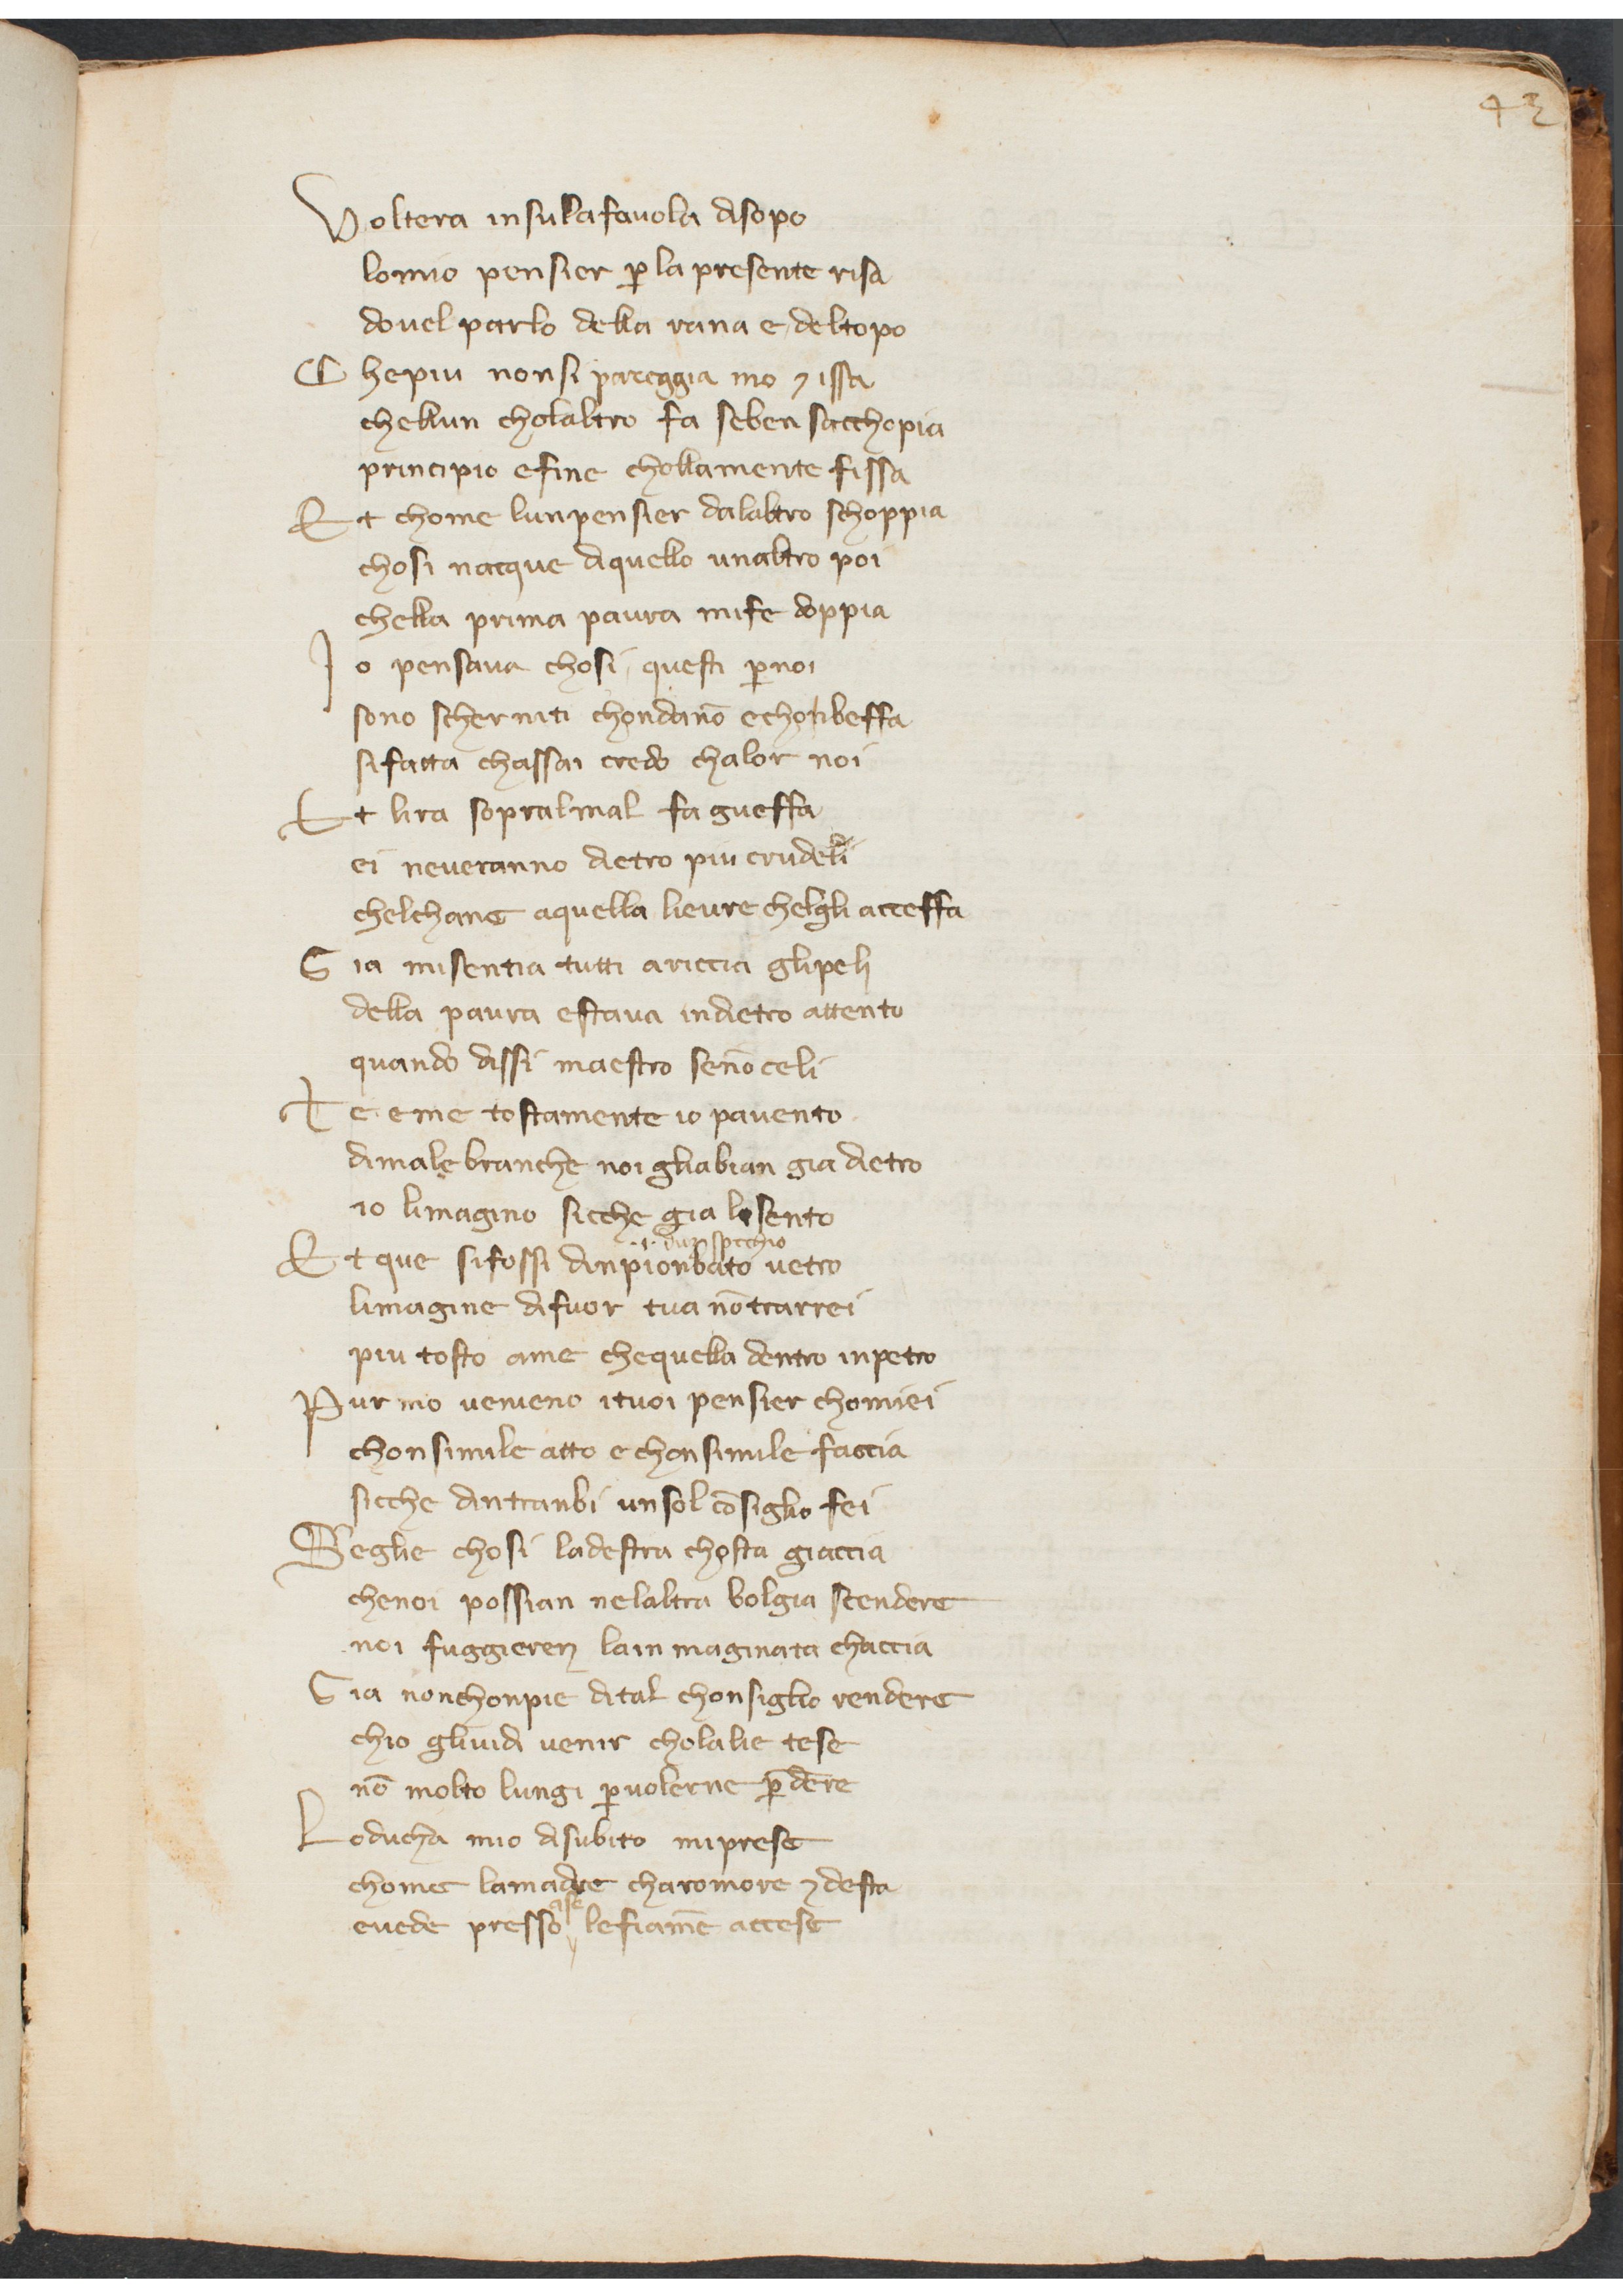 43
Voltera insulla favola disopo
lomio pensier p̱ la presente risa
dovel parlo della rana e deltopo
Chepiu nonsi pareggia mo ⁊ issa
chellun cholaltro fa seben sacchopia
principio efine chollamente fissa
Et chome lunpensier dalaltro schoppia
chosi nacque diquello unaltro poi
chella prima paura mife doppia
Io pensava chosi questi p̱noi
sono scherniti chondan̄o echonbeffa
sifatta chassai credo chalor noi
Et lira sopralmal fa gueffa
ei neveranno dietro piu crudeli
chelchane aquella lievre chelgli acceffa
Gia misentia tutti ariccia glipeli
della paura estava indietro attento
quando dissi maestro sen̄oceli
Te e me tostamente io pavento
dimale branche noi gliabian gia dietro
io limagino sicche gia losento
.i. dun specchio
Et que sifossi dinpionbato vetro
limagine difuor tua nōtrarrei
piu tosto ame chequella dentro inpetro
Pur mo venieno ituoi pensier chomiei
chonsimile atto e chonsimile faccia
sicche dintranbi unsol cōsiglio fei
Seglie chosi ladestra chosta giaccia
chenoi possian nelaltra bolgia scendere
noi fuggieren lain maginata chaccia
Gia nonchonpie dital chonsiglio rendere
chio glividi venir cholalie tese
nō molto lungi p̱volerne p̄dere
Loducha mio disubito miprese
chome lamadre charomore ⁊ desta
ase
evede presso lefiam̄e accese